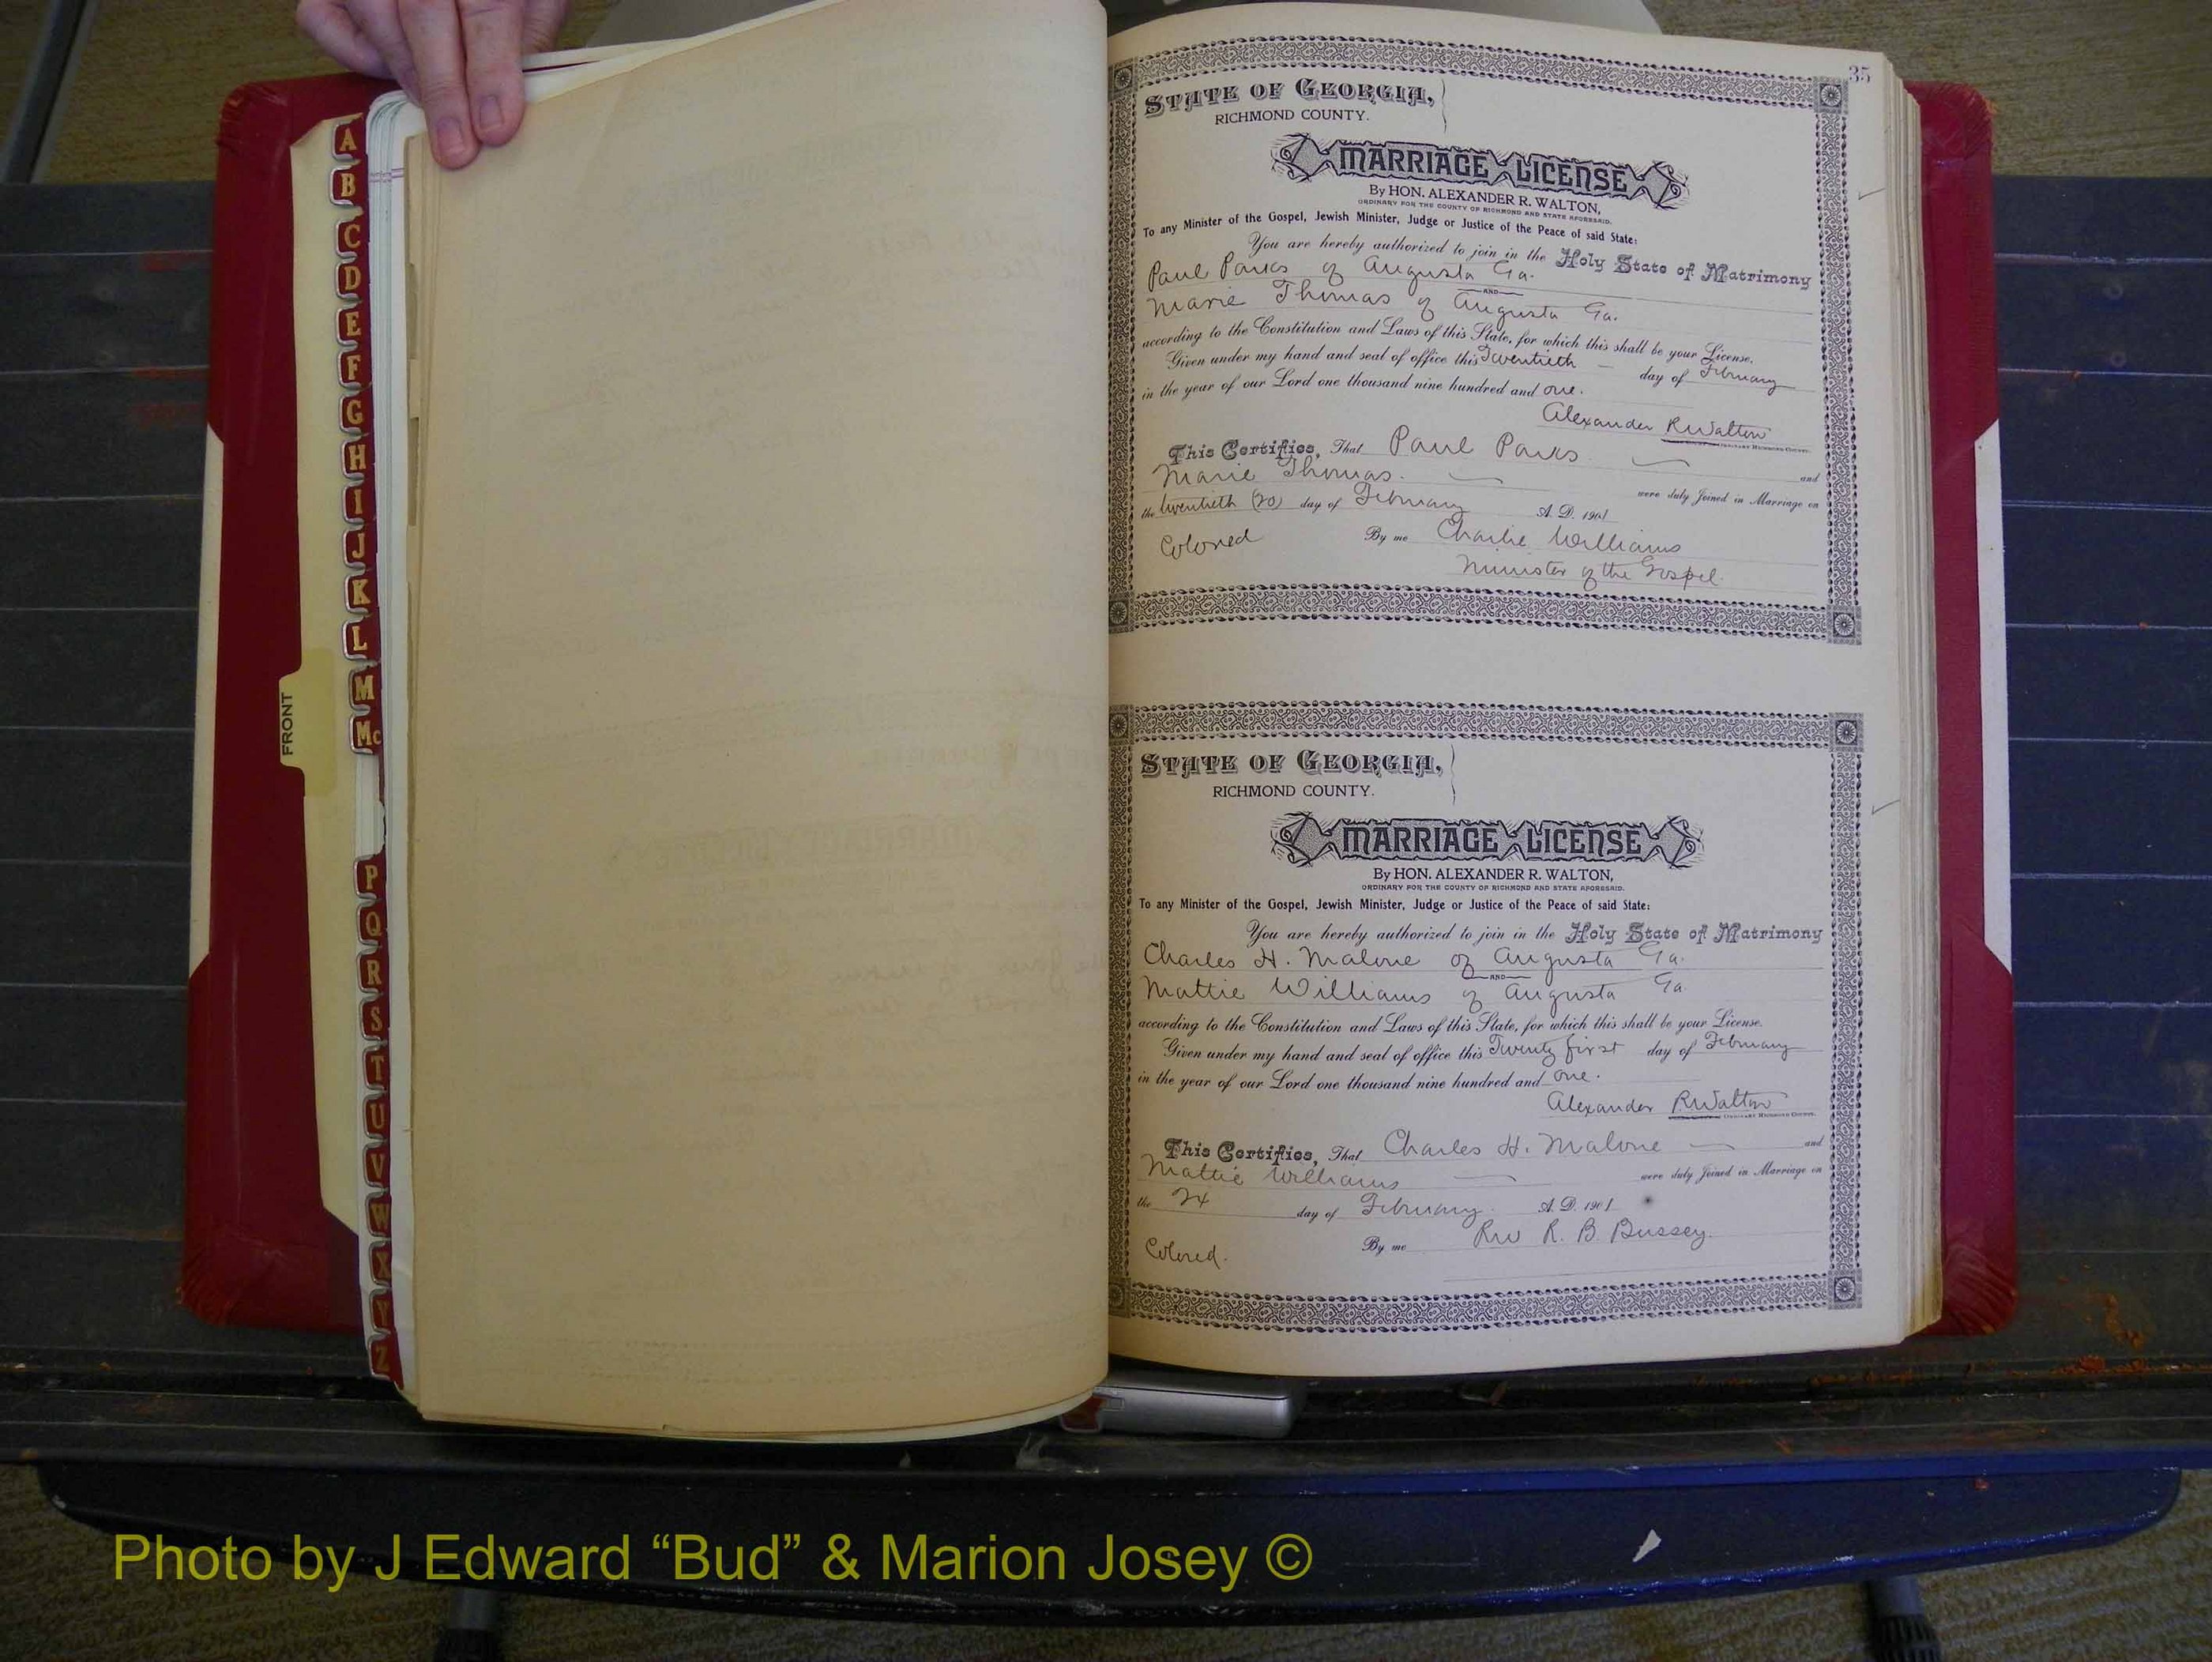 A
B
C
D
E
F
G
H
I
J
K
L
M
Mc
P
Q
R
S
T
U
V
W
X
Y
Z
FRONT
35
STATE OF GEORGIA,
RICHMOND COUNTY.
MARRIAGE LICENSE
By HON. ALEXANDER R. WALTON,
ORDINARY FOR THE COUNTY OF RICHMOND AND STATE AFORESAID.
To any Minister of the Gospel, Jewish Minister, Judge or Justice of the Peace of said State:
You are hereby authorized to join in the Holy State of Matrimony
Paul Parks of Augusta Ga.
AND
Marie Thomas of Augusta Ga.
according to the Constitution and Laws of this State, for which this shall be your License.
Given under my hand and seal of office this Twentieth — day of February
in the year of our Lord one thousand nine hundred and one.
Alexander R Walton
ORDINARY RICHMOND COUNTY.
This Certifies, That Paul Parks and
Marie Thomas. were duly Joined in Marriage on
the twentieth (20) day of February A. D. 1901
Colored By me Charlie Williams
Minister of the Gospel.
STATE OF GEORGIA,
RICHMOND COUNTY.
MARRIAGE LICENSE
By HON. ALEXANDER R. WALTON,
ORDINARY FOR THE COUNTY OF RICHMOND AND STATE AFORESAID.
To any Minister of the Gospel, Jewish Minister, Judge or Justice of the Peace of said State:
You are hereby authorized to join in the Holy State of Matrimony
Charles H. Malone of Augusta Ga.
AND
Mattie Williams of Augusta Ga
according to the Constitution and Laws of this State, for which this shall be your License.
Given under my hand and seal of office this Twenty first day of February
in the year of our Lord one thousand nine hundred and one.
Alexander R Walton
ORDINARY RICHMOND COUNTY.
This Certifies, That Charles H. Malone — and
Mattie Williams — were duly Joined in Marriage on
the 24 day of February. A. D. 1901
Colored. By me Rev R. B. Bussey.
Photo by J Edward “Bud” & Marion Josey ©